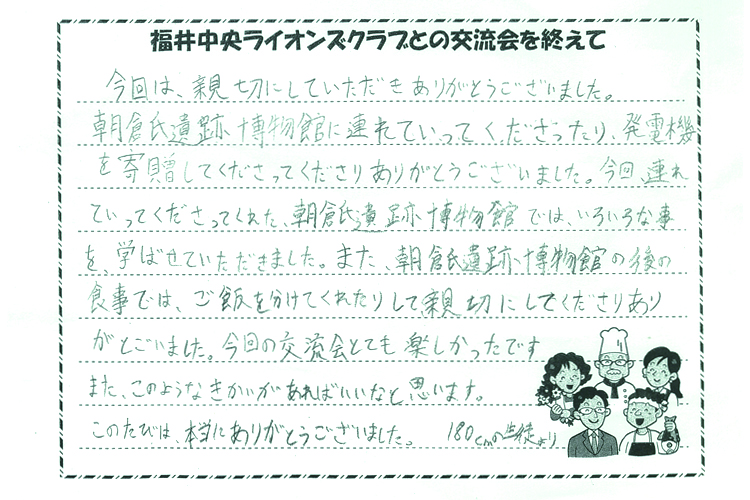 福井中央ライオンズクラブとの交流会を終えて
今回は、親切にしていただきありがとうございました。
朝倉氏遺跡博物館に連れていってくださったり、発電機
を寄贈してくださってくださりありがとうございました。今回、連れ
ていってくださってくれた、朝倉氏遺跡博物館では、いろいろな事
を、学ばせていただきました。また、朝倉氏遺跡博物館の後の
食事では、ご飯を分けてくれたりして親切にしてくださりあり
がとございました。今回の交流会とても楽しかったです
また、このようなきかいがあればいいなと思います。
このたびは、本当にありがとうございました。 180cmの生徒より